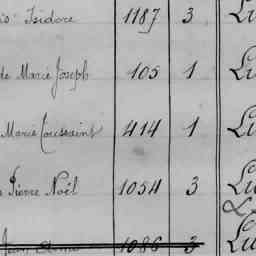 Isidore 1187 3 Lu
de Marie Joseph 105 1 Lu
Marie Toussaint 414 1 Lu
Pierre Noël 1054 3 Lu
Jean 1086 3 Lu